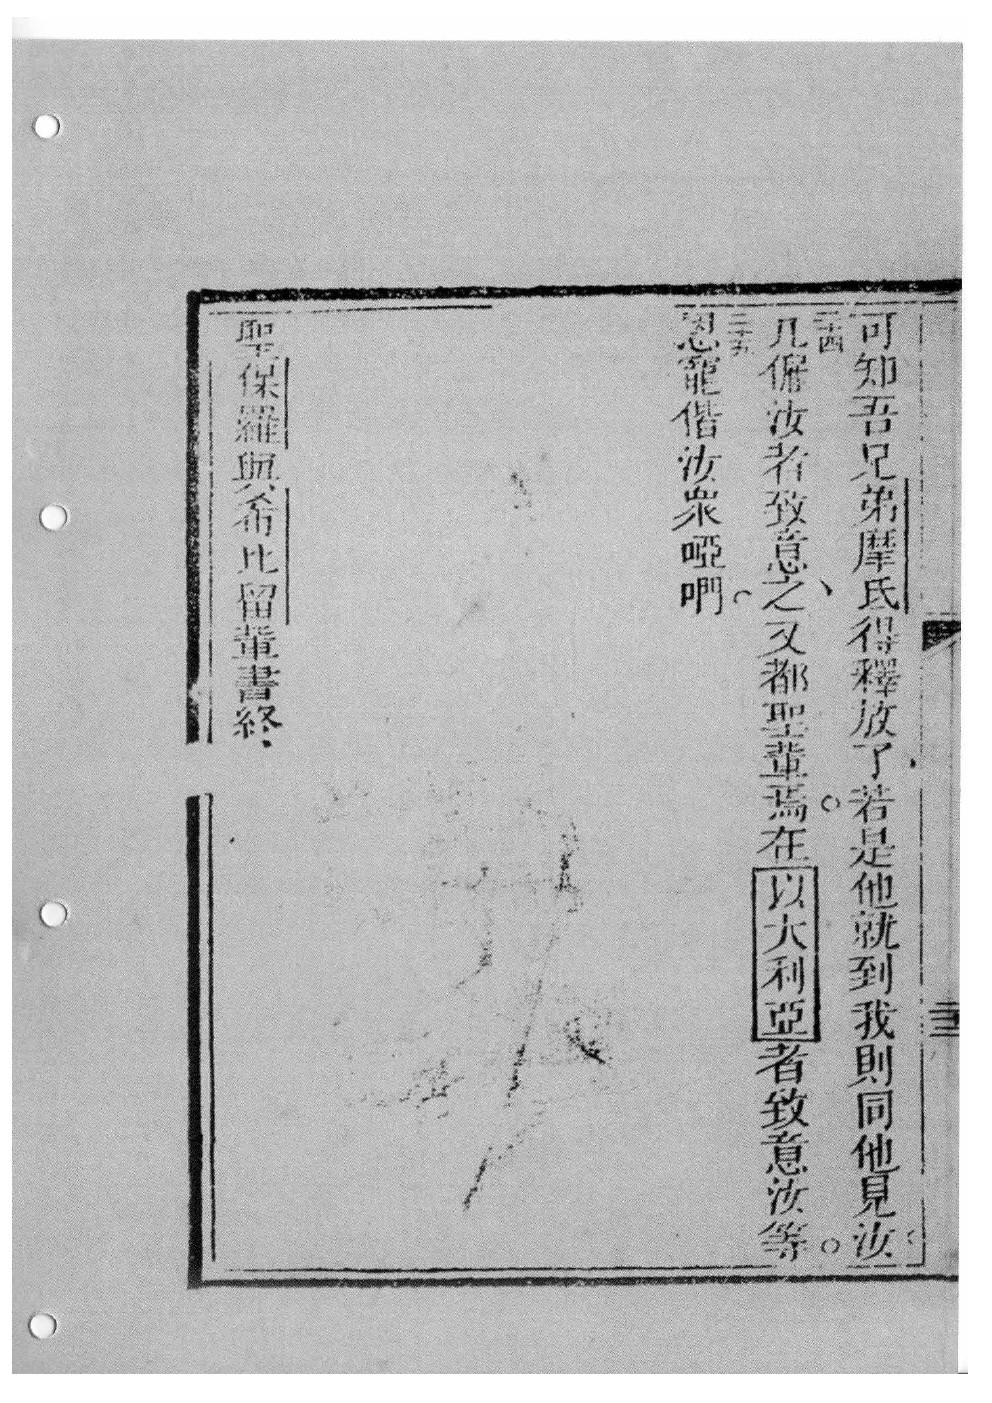 可知吾兄弟摩氐得釋放了、若是他就到我則同他見汝
二十四凡僱汝者致意之、又都聖輩焉。在以大利亞者致意汝等。
二十五恩寵偕汝衆啞吶。
聖保羅與希比留輩書終、